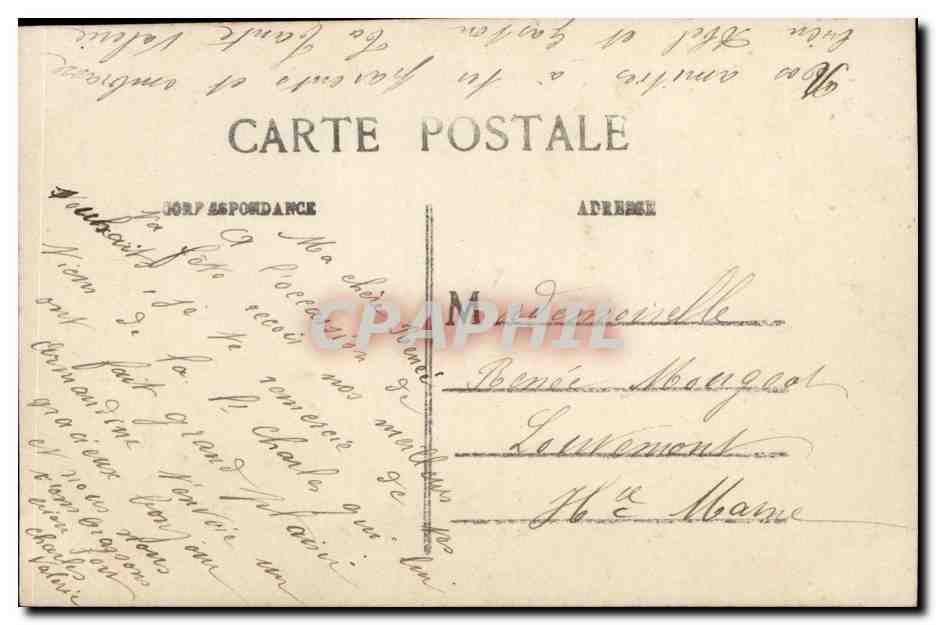 Nos amitiés à tes parents et embrasse
bien Abel et Gaston ta tante Valerie
CARTE POSTALE
CORRESPONDANCE
ADRESSE
Ma chère Renée
A l'occasion de
ta fête reçoi nos meilleurs
souhaits, je te remercie de tes
de la Charles qui lui
Viens fait grand plaisir
ont t'envoie un
Germandine bonjour
gracieux nous
et nous
t'embrassons
bien fort
Charles
Valerie
Mademoiselle
Renée Mougeot
Louvemont
Hte Marne
CPAPHIL